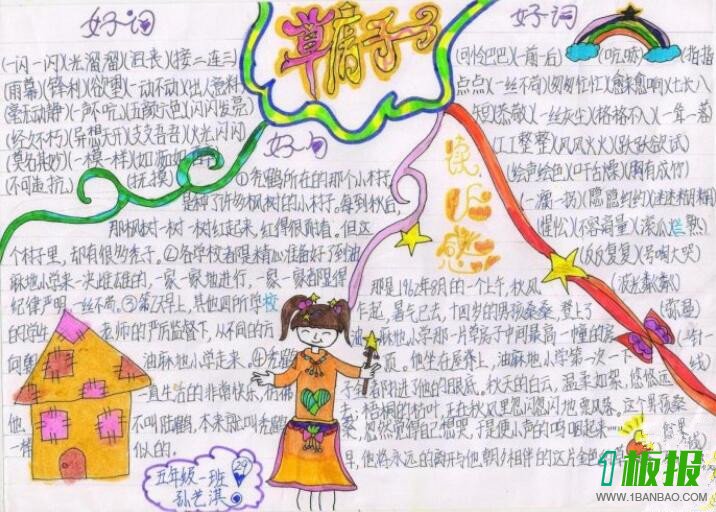 草房子
好词
(一闪一闪)(光溜溜)(沮丧)(接二连三)
(雨幕)(锋利)(欲望)(一动不动)(出人意料)
(毫无动静)(一声不吭)(五颜六色)(闪闪发亮)
(经久不朽)(异想天开)(支支吾吾)(火光闪闪)
(莫名其妙)(一模一样)(如
(不可抵抗)(抚摸)
好词
(前一后)(吭哧)(指指
点点)(一丝不苟)(匆匆忙忙)(愈来愈响)(七长八
短)(恭敬)(一丝灰尘)(格格不入)(一耸一落)
(工工整整)(风风火火)(跃跃欲试)
(绘声绘色)(口干舌燥)(胸有成竹)
(隐隐约约)(迷迷糊糊)
(惺忪)(不容商量)(滚瓜烂熟)
(反反复复)(号啕大哭)
好句
①秃鹤所在的那个小村子,
是种了许多枫树的小村子。每到秋后,
那枫树一树一树红起来,红得很耐看。但这
个村子里,却有很多秃子。②各学校都早早精心准备好了到油
麻地小学来一决雌雄的,一家一家地进行,一家一家都显得
纪律严明,一丝不苟。③第二天早上,其他四所学校
的学生 老师的严厉监督下,从不同的方
向朝 油麻地小学走来。④秃鹤
一直生活的非常快乐,仿佛
他 不叫陆鹤,本来就叫秃鹤
一样 似的。
读后感
那是1962年8月的一个上午,秋风
乍起,暑气已去,十四岁的男孩桑桑,登上了
油麻地小学那一片草房子中间最高一幢的房
顶。他坐在屋脊上,油麻地小学第一次一下
子全都扑进了他的眼底。秋天的白云,温柔如絮,悠悠远
去,梧桐的枯叶,正在秋风里忽闪忽闪地飘落。这个男孩桑
桑,忽然觉得自己想哭,于是便小声的呜咽起来……
早,他将永远的离开与他朝夕相伴的这片金
五年级一班
29
孙艺淇
1板报
WWW.1BANBAO.COM